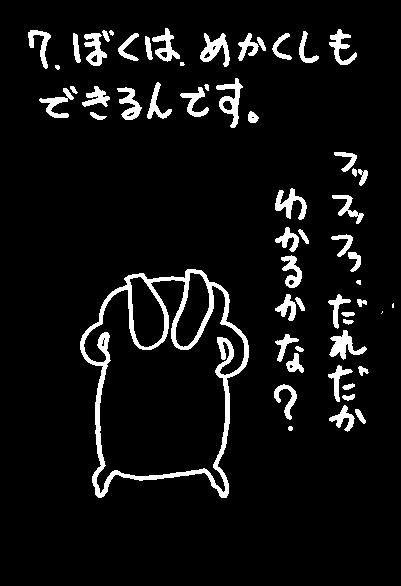 7.ぼくは、めかくしも
できるんです。
フッフッフッ、だれだか
わかるかな?